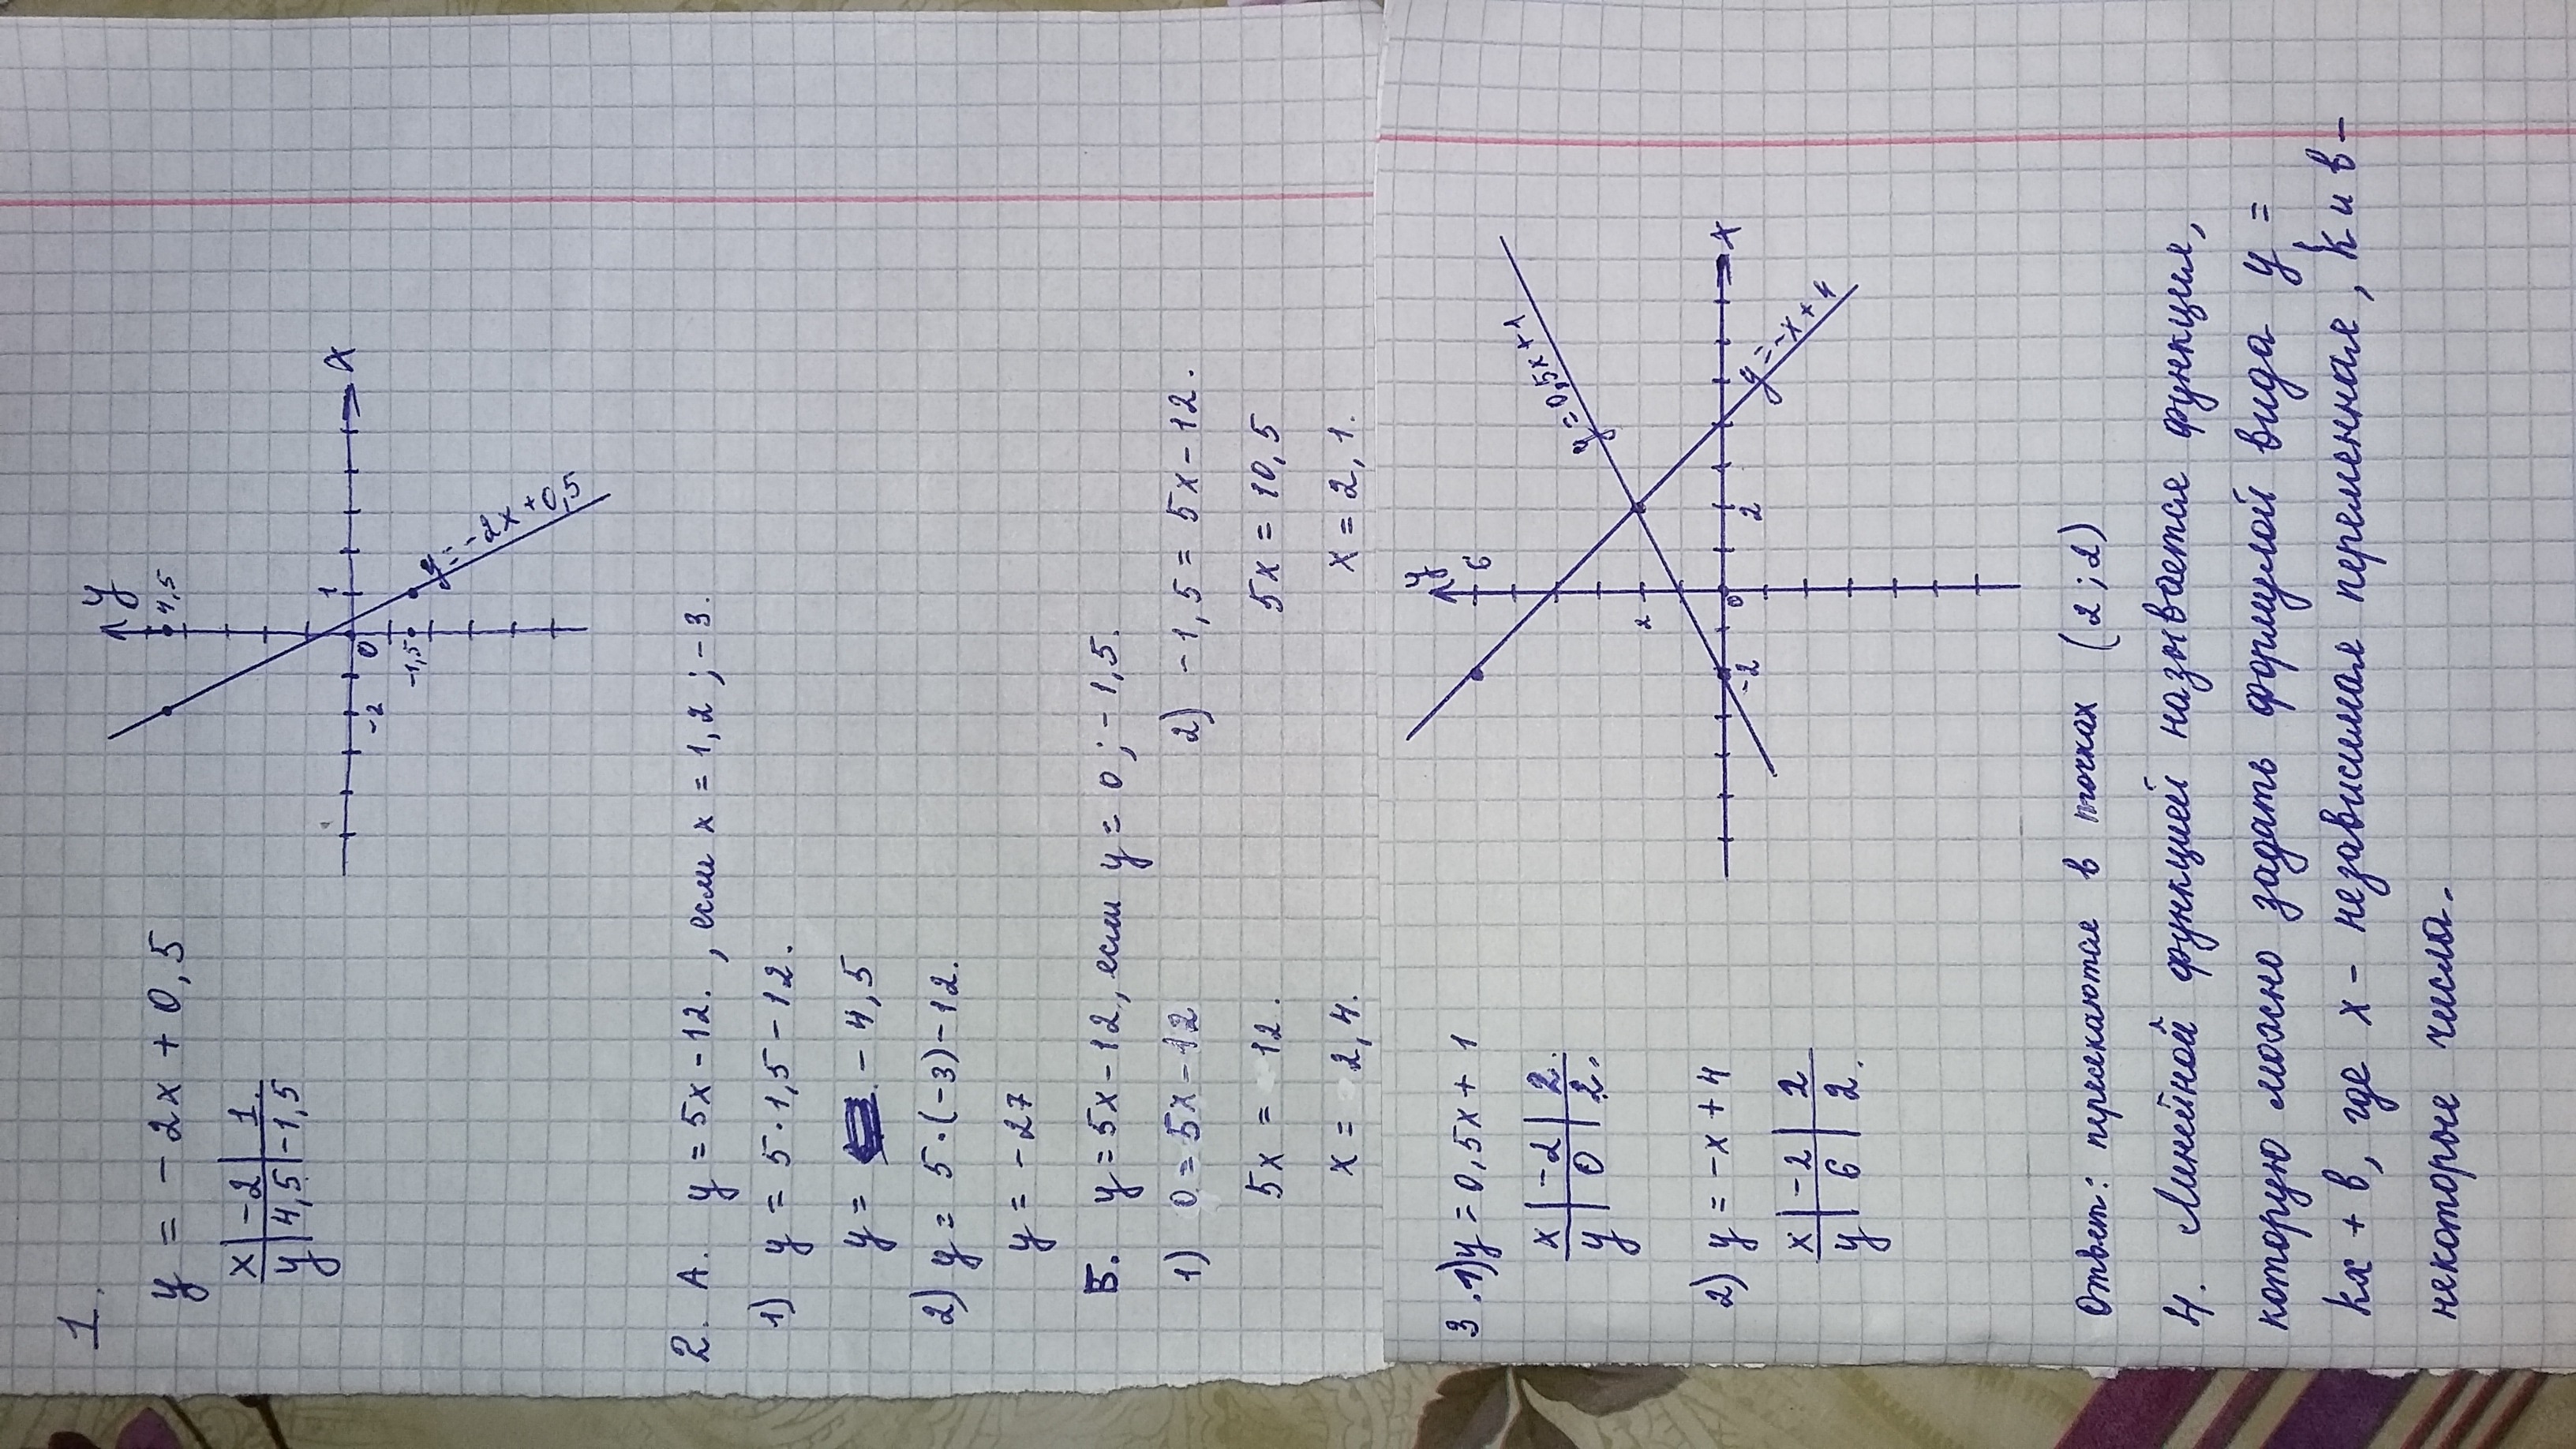 1.
y = - 2x + 0,5
x | -2 | 1.
y | 4,5 | -1,5
y
4,5
1
x
0
-2
-1,5
y = -2x + 0,5
2. А. y = 5x - 12. , если x = 1,2 ; -3.
1) y = 5 · 1,5 - 12.
y = - 4,5
2) y = 5 · (-3) - 12.
y = - 27
Б. y = 5x - 12, если y = 0 ; - 1,5.
1) 0 = 5x - 12
2) - 1,5 = 5x - 12.
5x = 12.
5x = 10,5
x = 2,4.
x = 2,1.
3. 1) y = 0,5x + 1
x | -2 | 2.
y | 0 | 2.
2) y = - x + 4
x | -2 | 2
y | 6 | 2.
y
6
y = 0,5x + 1
2
-2
0
2
x
y = -x + 4
Ответ: пересекаются в точках (2 ; 2)
4. Линейной функцией называется функция,
которую можно задать формулой вида y =
kx + b, где x - независимая переменная, k и b -
некоторые числа.